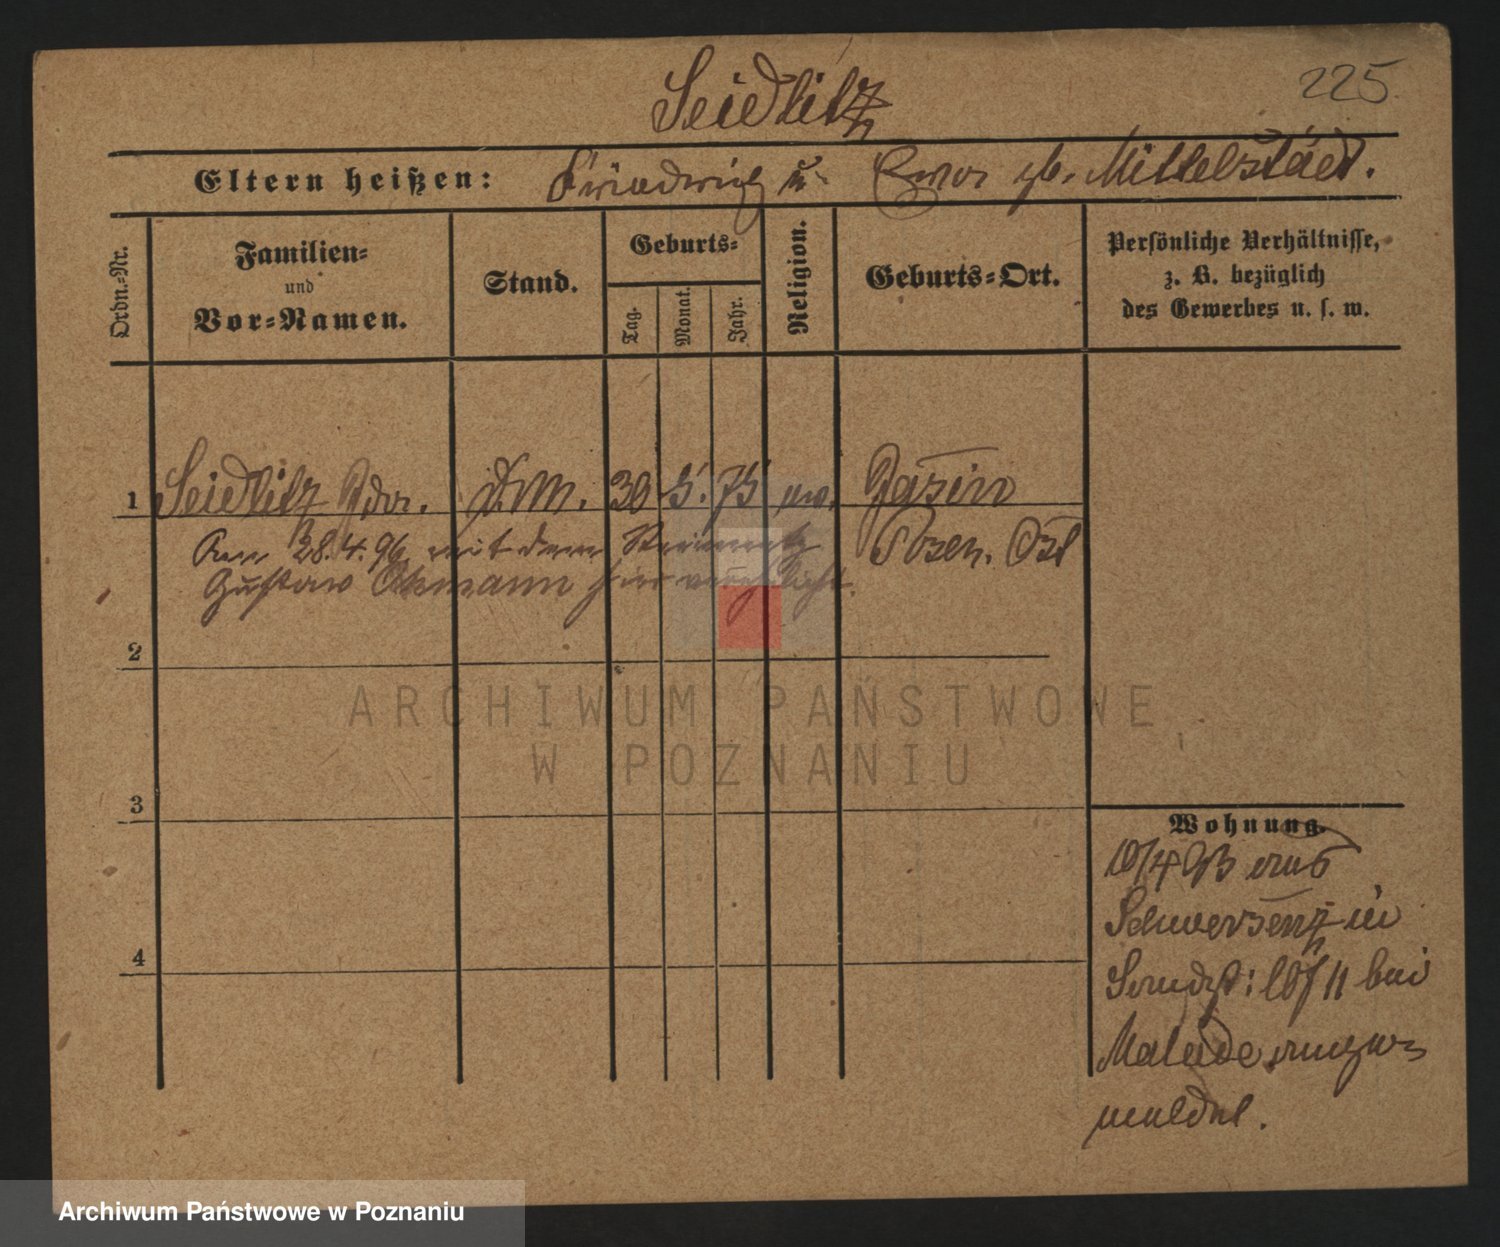 Seidlitz
225.
Eltern heißen: Friedrich u. Eva gb. Mittelstädt.
Ordn.-Nr.
Familien-
und
Vor-Namen.
Stand.
Geburts-
Tag.
Monat.
Jahr.
Religion.
Geburts-Ort.
Persönliche Verhältnisse,
z. B. bezüglich
des Gewerbes u. s. w.
1 Seidlitz Ida. D.M. 30 5. 75 ev. Gasin
Posen. Ost
Am 28.4.96 mit dem Steinmetz
Gustav hier verehelicht.
2
3
4
Wohnung.
10/4 93 aus
Schwersenz in
Sandst: 10/11 bei
Malade angem
meldet.
ARCHIWUM PAŃSTWOWE
W POZNANIU
Archiwum Państwowe w Poznaniu